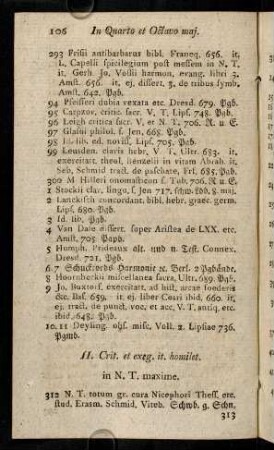 106 In Quarto et Octavo maj.
293 Frisii antibarbarus bibl. Franeq. 656. it.
L. Capelli spicilegium post messem in N. T.
it. Gerh. Jo. Vossii harmon. evang. libri 3.
Amst. 656. it. ej. dissert. 3. de tribus symb.
Amst. 642. Pgb.
94 Pfeifferi dubia vexata etc. Dresd. 679. Pgb.
95 Carpzov. critic. sacr. V. T. Lips. 748. Pgb.
96 Leigh critica sacr. V. et N. T. 706. R. u. E.
97 Glasii philol. s. Jen. 668. Pgb.
98 Id. lib. ed. noviss. Lips. 705. Pgb.
99 Leusden. clavis hebr. V. T. Ultr. 683. it.
exercitatt. theol. Henzelii in vitam Abrah. it.
Seb. Schmid tract. de paschate, Frf. 685. Pgb.
300 M. Hilleri onomasticon s. Tub. 706. R. u. E.
1 Stockii clav. lingu. s. Jen 717. schw. Ldb. 8. maj.
2 Lanckisch concordant. bibl. hebr. graec. germ.
Lips. 680. Pgb.
3 Id. lib. Pgb.
4 Van Dale dissert. super Aristea de LXX. etc.
Amst. 705. Papb.
5 Humph. Prideaux alt. und n. Test. Connex.
Dresd. 721. Pgb.
6.7 Schuckfords Harmonie etc. Berl. 2 Pgbände.
8 Hoornbeekii miscellanea sacra, Ultr. 689. Pgb.
9 Jo. Buxtorf. exercitatt. ad hist. arcae foederis
etc. Bas. 659. it. ej. liber Cosri ibid. 660. it.
ej. tract. de punct. voc. et acc. V. T. antiq. etc.
ibid. 648. Pgb.
10.11 Deyling. obs. misc. Voll. 2. Lipsiae 736.
Pgmb.
II. Crit. et exeg. it. homilet.
in N. T. maxime.
312 N. T. totum gr. cura Nicephori Thess. etc.
stud. Erasm. Schmid, Viteb. Schwb. g. Schn.
313